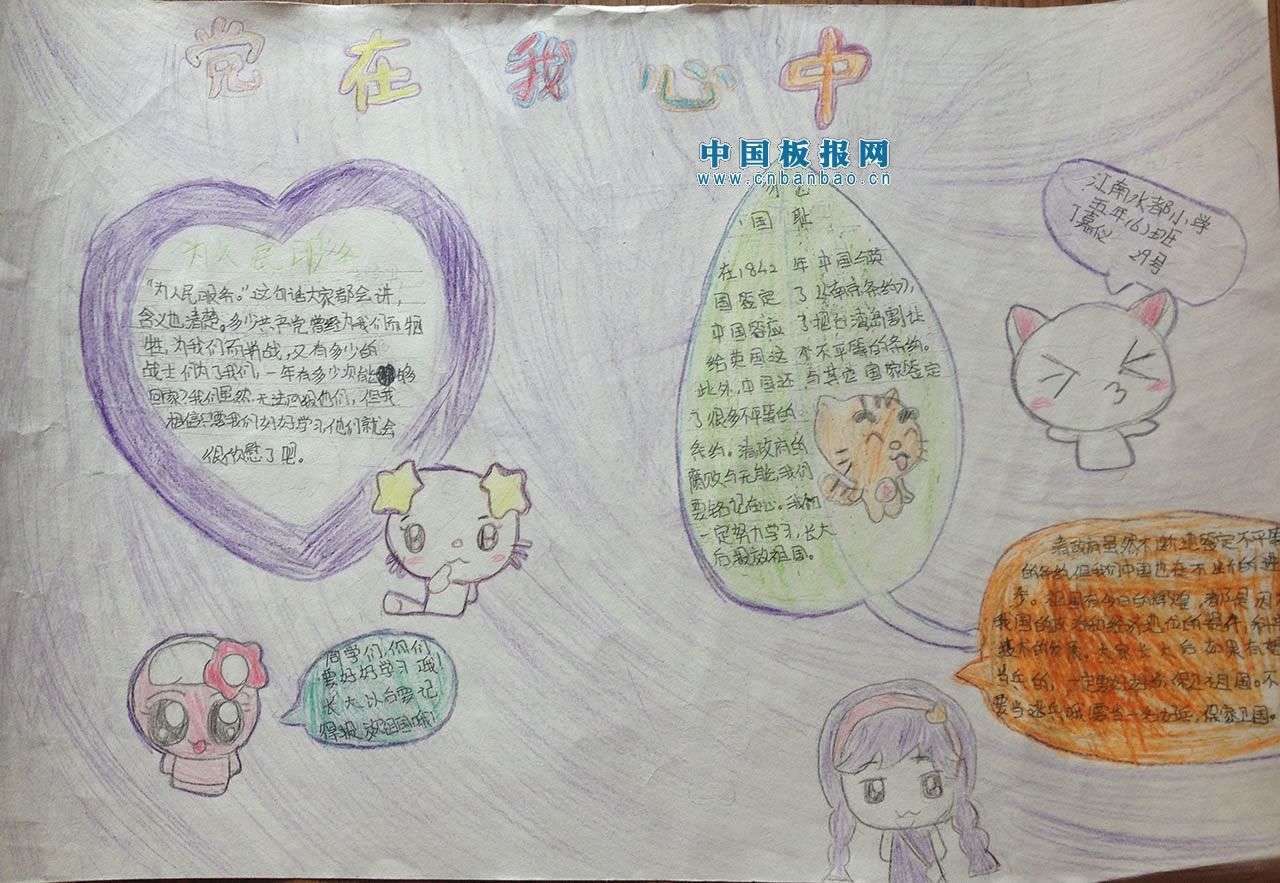 党在我心中
中国板报网
www.cnbanbao.cn
为人民服务
“为人民服务。”这句话大家都会讲，
含义也清楚。多少共产党曾经为我们而牺
牲，为我们而奔战，又有多少的
战士们为了我们，一年有多少次能够
回家？我们虽然无法回报他们，但我
相信只要我们好好学习他们就会
很欣慰了吧。
勿忘
国耻
在1842年中国与英
国鉴定了《南京条约》，
中国答应了把台湾岛割让
给英国这个不平等的条约。
此外，中国还与其他国家鉴定
了很多不平等的
条约。清政府的
腐败与无能，我们
要铭记在心。我们
一定努力学习，长大
后报效祖国。
江南水都小学
五年(6)班
丁嘉仪
29号
同学们，你们
要好好学习哦！
长大以后要记
得报效祖国哦！
清政府虽然不断地鉴定不平等
的条约但我们中国也在不断的进
步。祖国有今日的辉煌，都是因
我国的政治和经济地位的提升，科学
技术的发展。大家长大后如果有想
当兵的，一定要好好保卫祖国。不
要当逃兵哦要当一名好兵，保家卫国。